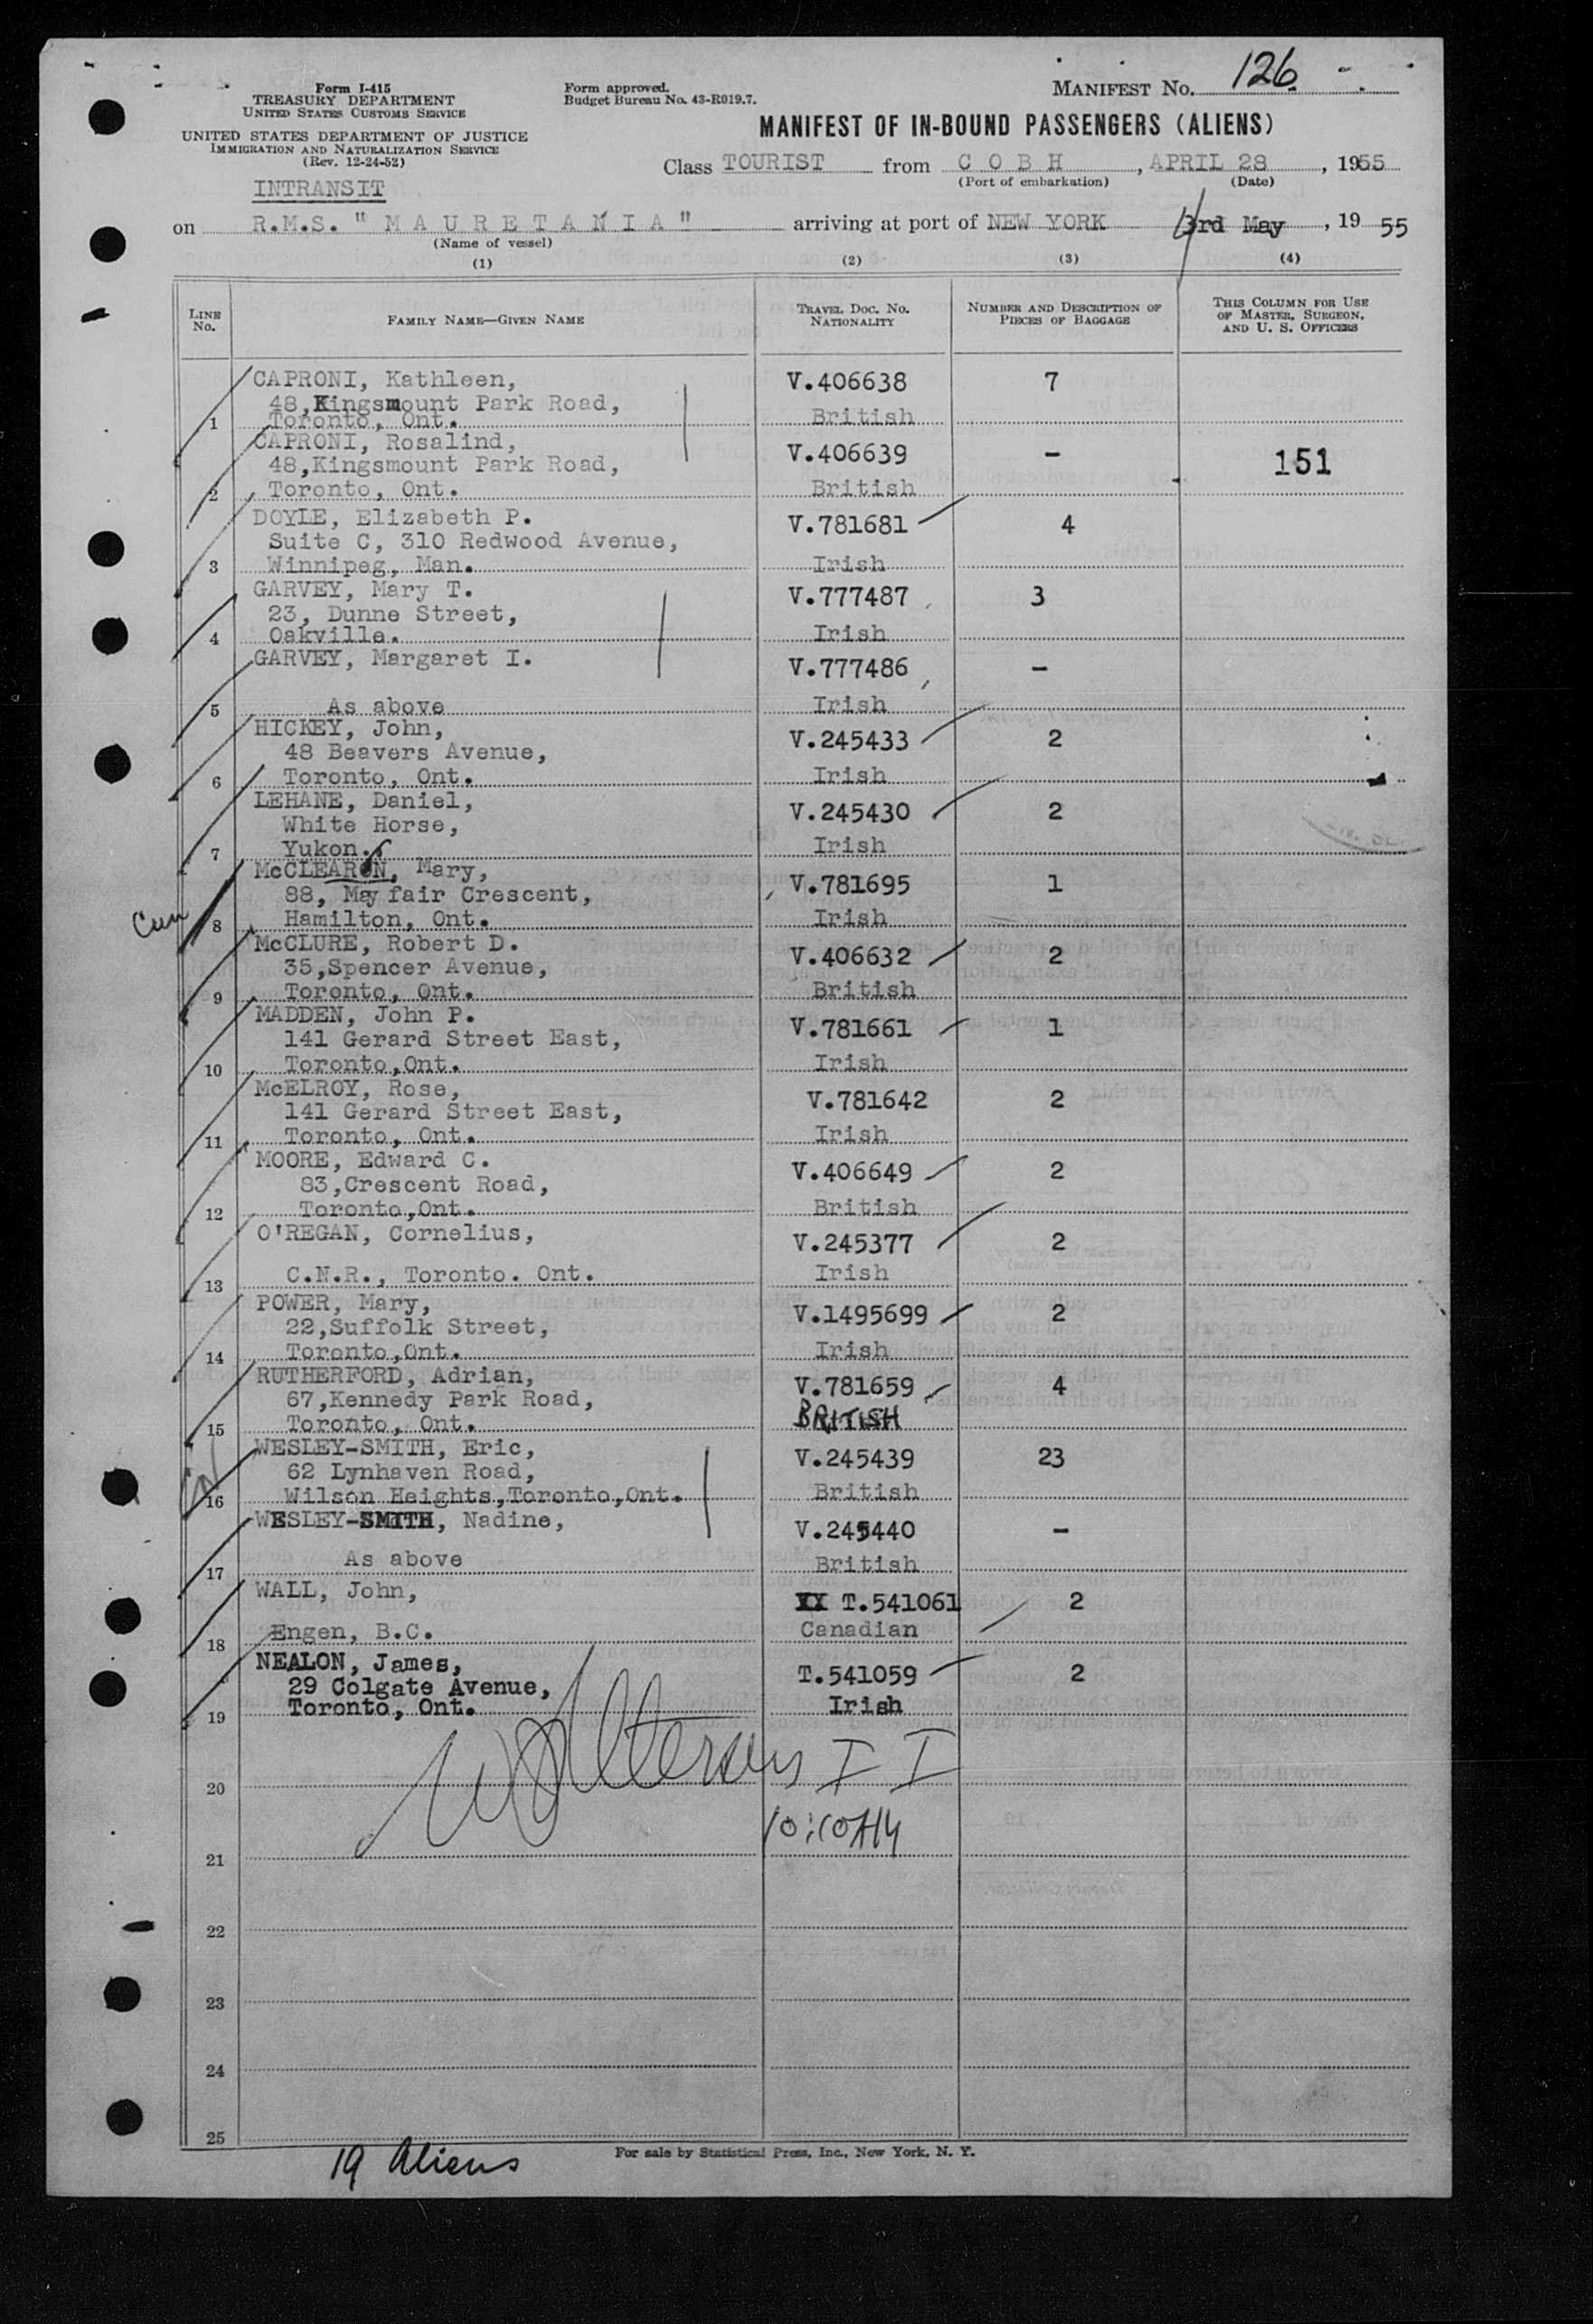 Form I-415
TREASURY DEPARTMENT
UNITED STATES CUSTOMS SERVICE
UNITED STATES DEPARTMENT OF JUSTICE
IMMIGRATION AND NATURALIZATION SERVICE
(Rev. 12-24-52)
INTRANSIT
Form approved.
Budget Bureau No. 43-R019.7.
MANIFEST NO. 126
MANIFEST OF IN-BOUND PASSENGERS (ALIENS)
Class TOURIST from C O B H, APRIL 28, 1955
(Port of embarkation) (Date)
on R.M.S. "M A U R E T A N I A" arriving at port of NEW YORK 3rd May, 1955
(Name of vessel)
(1) (2) (3) (4)
LINE No. FAMILY NAME—GIVEN NAME TRAVEL DOC. NO. NATIONALITY NUMBER AND DESCRIPTION OF PIECES OF BAGGAGE THIS COLUMN FOR USE OF MASTER, SURGEON, AND U. S. OFFICERS
CAPRONI, Kathleen, V.406638 7
48,Kingsmount Park Road,
1 Toronto, Ont. British
CAPRONI, Rosalind, V.406639 -
48,Kingsmount Park Road, 151
2 Toronto, Ont. British
DOYLE, Elizabeth P. V.781681 4
Suite C, 310 Redwood Avenue,
3 Winnipeg, Man. Irish
GARVEY, Mary T. V.777487 3
23, Dunne Street,
4 Oakville. Irish
GARVEY, Margaret I. V.777486 -
5 As above Irish
HICKEY, John, V.245433 2
48 Beavers Avenue,
6 Toronto, Ont. Irish
LEHANE, Daniel, V.245430 2
White Horse,
7 Yukon. Irish
McCLEARON, Mary, V.781695 1
88, Mayfair Crescent,
8 Hamilton, Ont. Irish
McCLURE, Robert D. V.406632 2
35,Spencer Avenue,
9 Toronto, Ont. British
MADDEN, John P. V.781661 1
141 Gerard Street East,
10 Toronto,Ont. Irish
McELROY, Rose, V.781642 2
141 Gerard Street East,
11 Toronto, Ont. Irish
MOORE, Edward C. V.406649 2
83,Crescent Road,
12 Toronto,Ont. British
O'REGAN, Cornelius, V.245377 2
13 C.N.R., Toronto. Ont. Irish
POWER, Mary, V.1495699 2
22,Suffolk Street,
14 Toronto,Ont. Irish
RUTHERFORD, Adrian, V.781659 4
67,Kennedy Park Road,
15 Toronto, Ont. BRITISH
WESLEY-SMITH, Eric, V.245439 23
62 Lynhaven Road,
16 Wilson Heights,Toronto,Ont. British
WESLEY-SMITH, Nadine, V.245440 -
17 As above British
WALL, John, XX T.541061 2
18 Engen, B.C. Canadian
NEALON, James, T.541059 2
29 Colgate Avenue,
19 Toronto, Ont. Irish
20 I I
10:10AM
21
22
23
24
25
19 Aliens
For sale by Statistical Press, Inc., New York, N. Y.